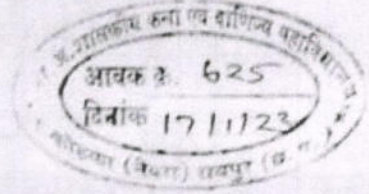 शासकीय कला एवं वाणिज्य महाविद्यालय
आवक क्र. 625
दिनांक 17/1/23
(नेवरा) रायपुर (छ. ग.)